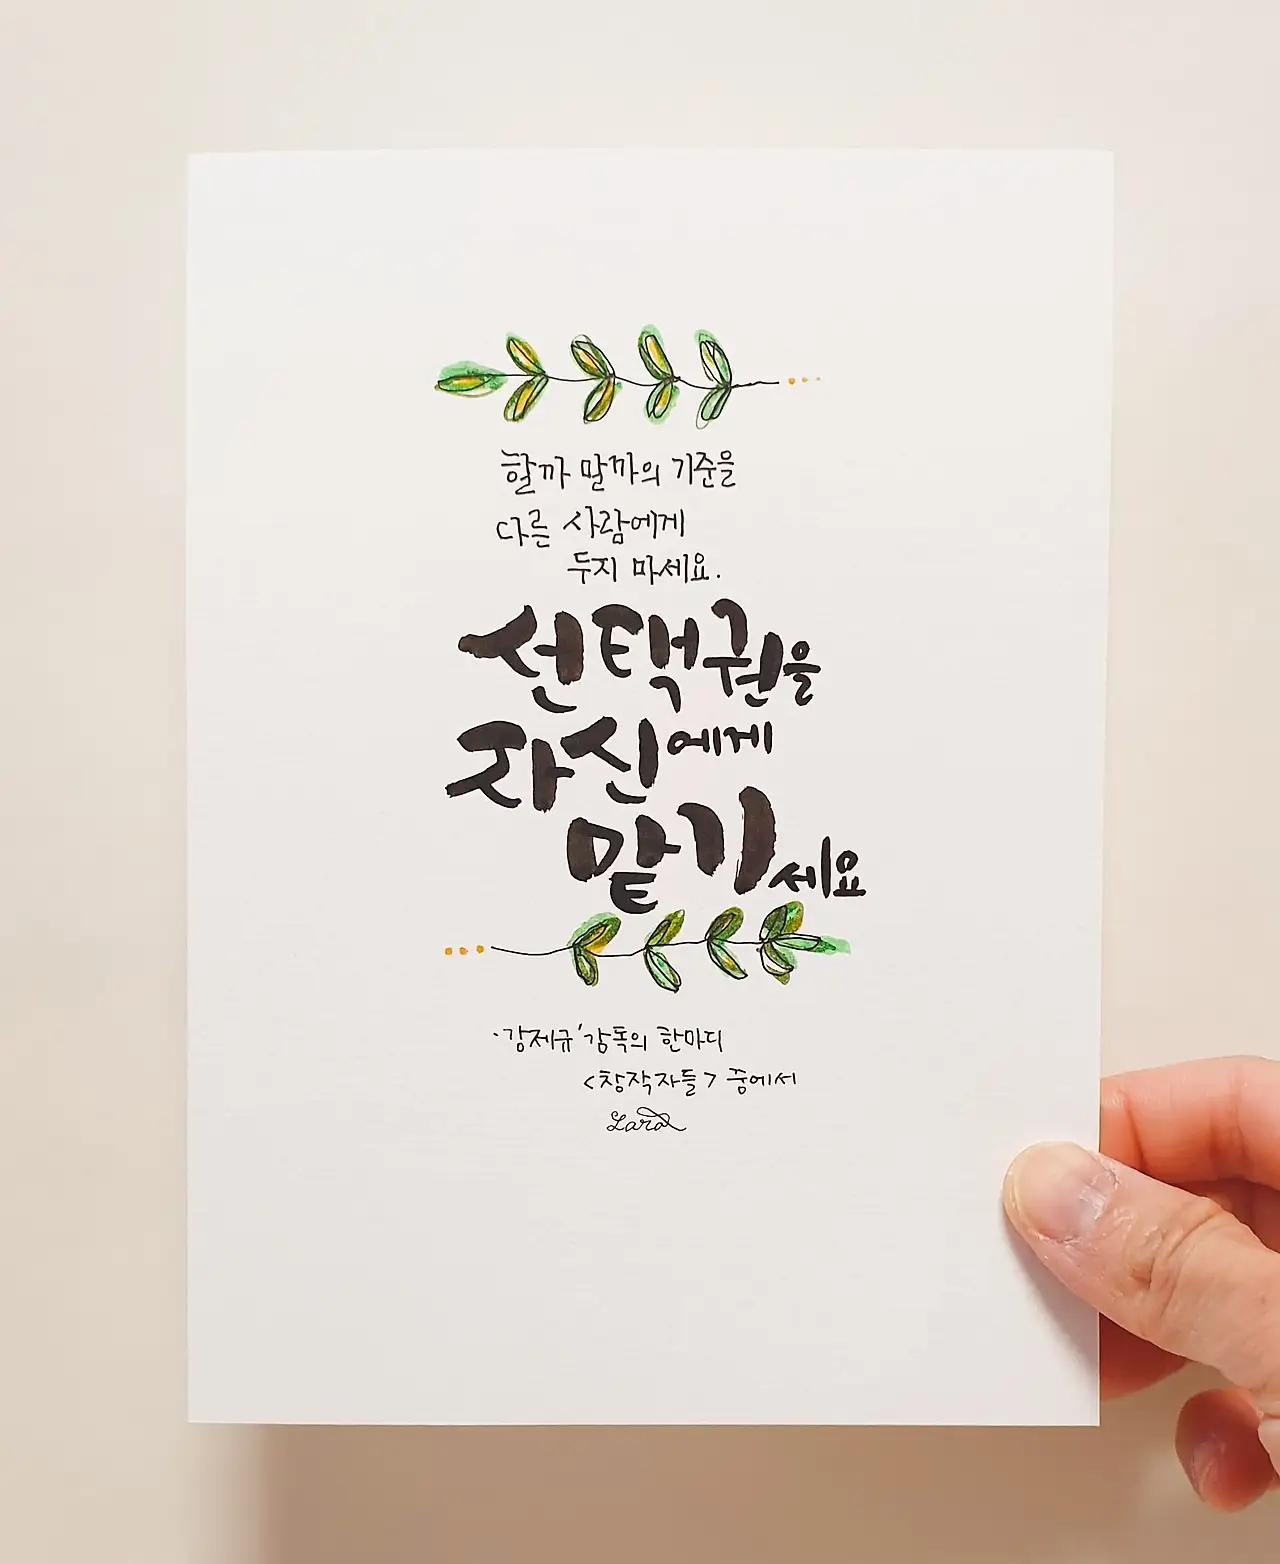 할까 말까의 기준을
다른 사람에게
두지 마세요.
선택권을
자신에게
맡기세요
'강제규' 감독의 한마디
<창작자들> 중에서
Lara